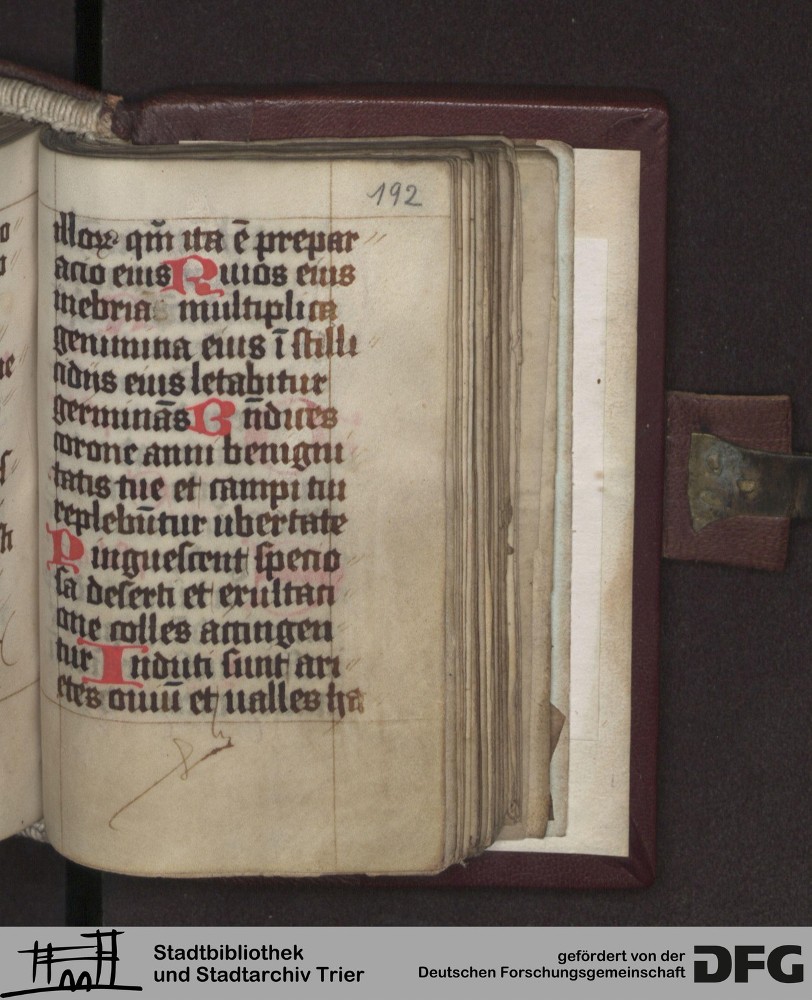 192
illoꝝ qm̄ ita ē prepar
acio eius Riuos eius
inebria multiplica
genimina eius ī stilli
cidiis eius letabitur
germinās Bn̄dices
corone anni benigni
tatis tue et campi tui
replebūtur ubertate
Pinguescent specio
sa deserti et exultaci
one colles accingen
tur Induti sunt ari
etes ouiū et ualles ha
Stadtbibliothek
und Stadtarchiv Trier
gefördert von der
Deutschen Forschungsgemeinschaft
DFG